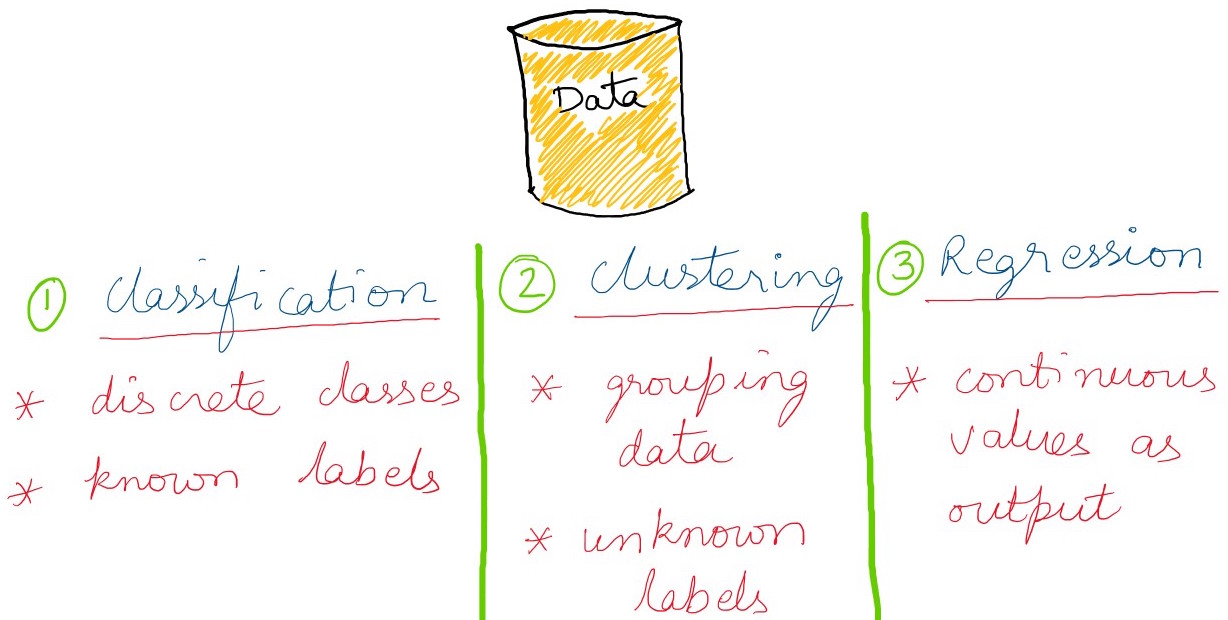 Data
① classification
* discrete classes
* known labels
② clustering
* grouping
data
* unknown
labels
③ Regression
* continuous
values as
output